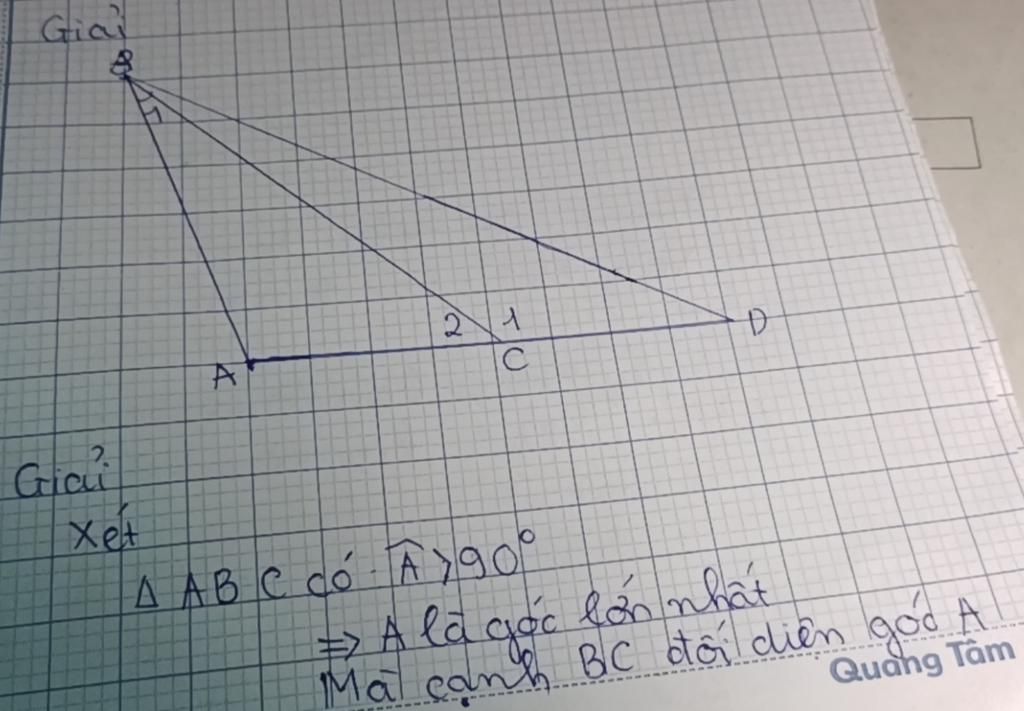 Giải
B
1
2 1
D
A
C
Giải
Xét
Δ ABC có Â > 90°
⇒ A là góc lớn nhất
Mà cạnh BC đối diện góc A
Quang Tâm